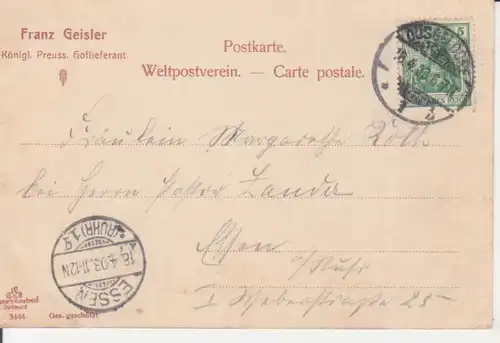 Franz Geisler
Königl. Preuss. Hoflieferant
Postkarte.
Weltpostverein. — Carte postale.
5
DÜSSELDORF
Fräulein Margarethe
bei Herrn Pastor Landa
Essen
a/Ruhr
I Weberstraße 25
ESSEN
(RUHR) 1
16.4.03.11-12N
Dortmund
3444
Ges. geschützt